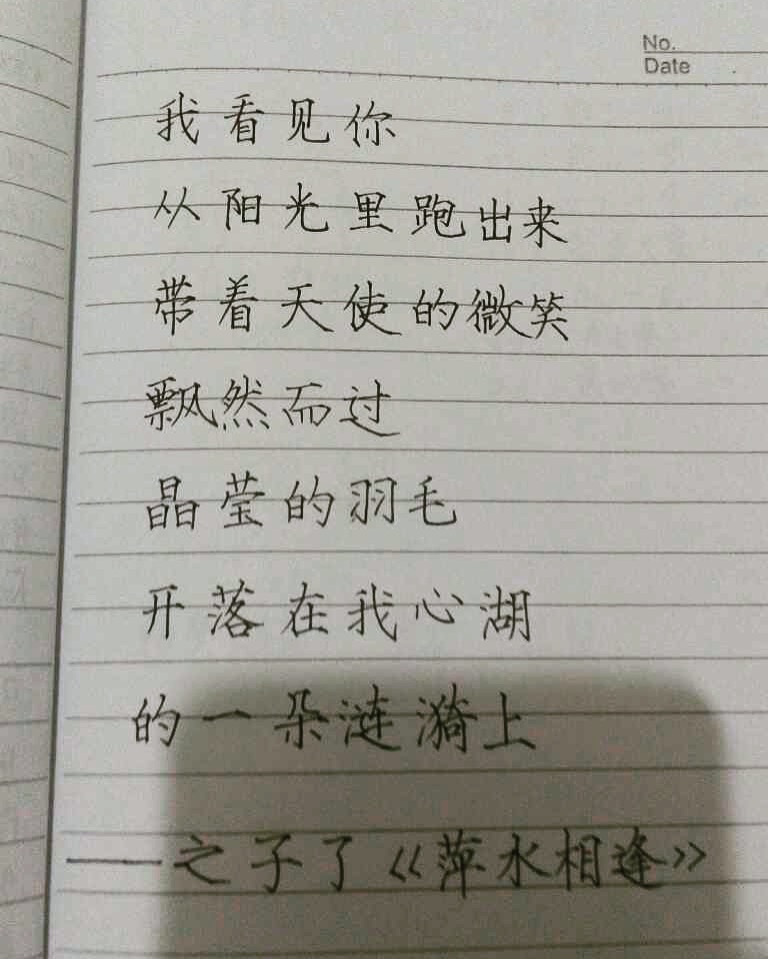 No.
Date
我看见你
从阳光里跑出来
带着天使的微笑
飘然而过
晶莹的羽毛
开落在我心湖
的一朵涟漪上
——之子了《萍水相逢》